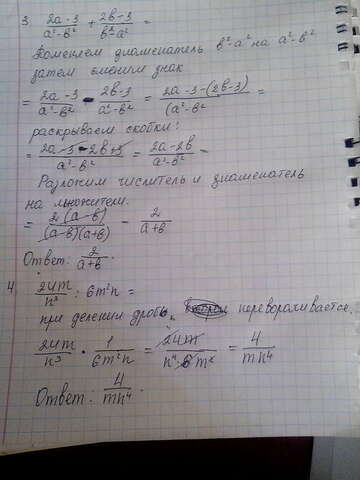 3. (2a-3)/(a²-b²) + (2b-3)/(b²-a²) =
Поменяем знаменатель b²-a² на a²-b²
затем сменим знак
= (2a-3)/(a²-b²) - (2b-3)/(a²-b²) = (2a-3-(2b-3))/(a²-b²) =
раскрываем скобки:
= (2a-3-2b+3)/(a²-b²) = (2a-2b)/(a²-b²) =
Разложим числитель и знаменатель
на множители.
= 2(a-b)/((a-b)(a+b)) = 2/(a+b)
Ответ: 2/(a+b).
4. 24m/n³ : 6m²n =
при делении дробь, переворачивается.
24m/n³ · 1/(6m²n) = 24m/(n⁴ 6m²) = 4/(mn⁴)
Ответ: 4/(mn⁴).